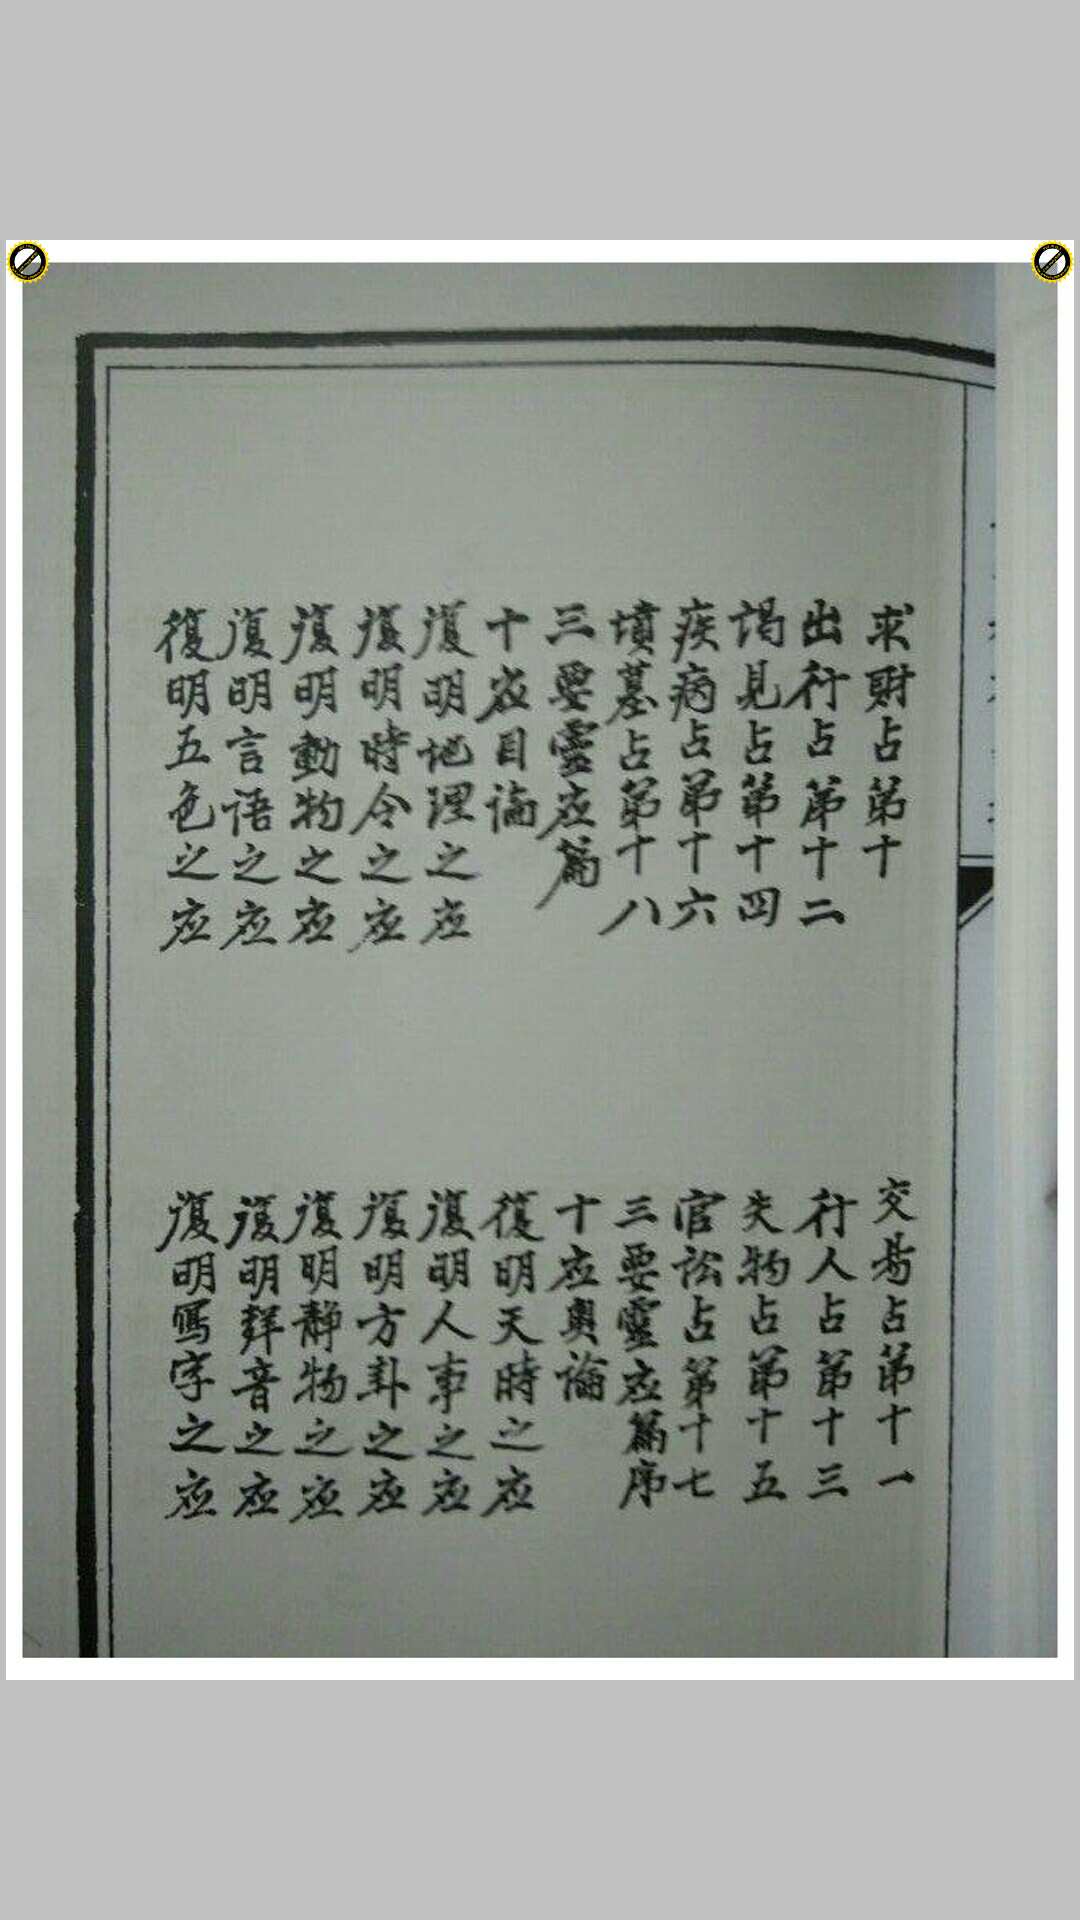 求財占第十
交昜占第十一
出行占第十二
行人占第十三
謁見占第十四
失物占第十五
疾病占第十六
官訟占第十七
墳墓占第十八
三要靈应篇序
三要靈应篇
十应奥論
十应目論
復明天時之应
復明地理之应
復明人事之应
復明時令之应
復明方卦之应
復明動物之应
復明静物之应
復明言語之应
復明聲音之应
復明五色之应
復明寫字之应